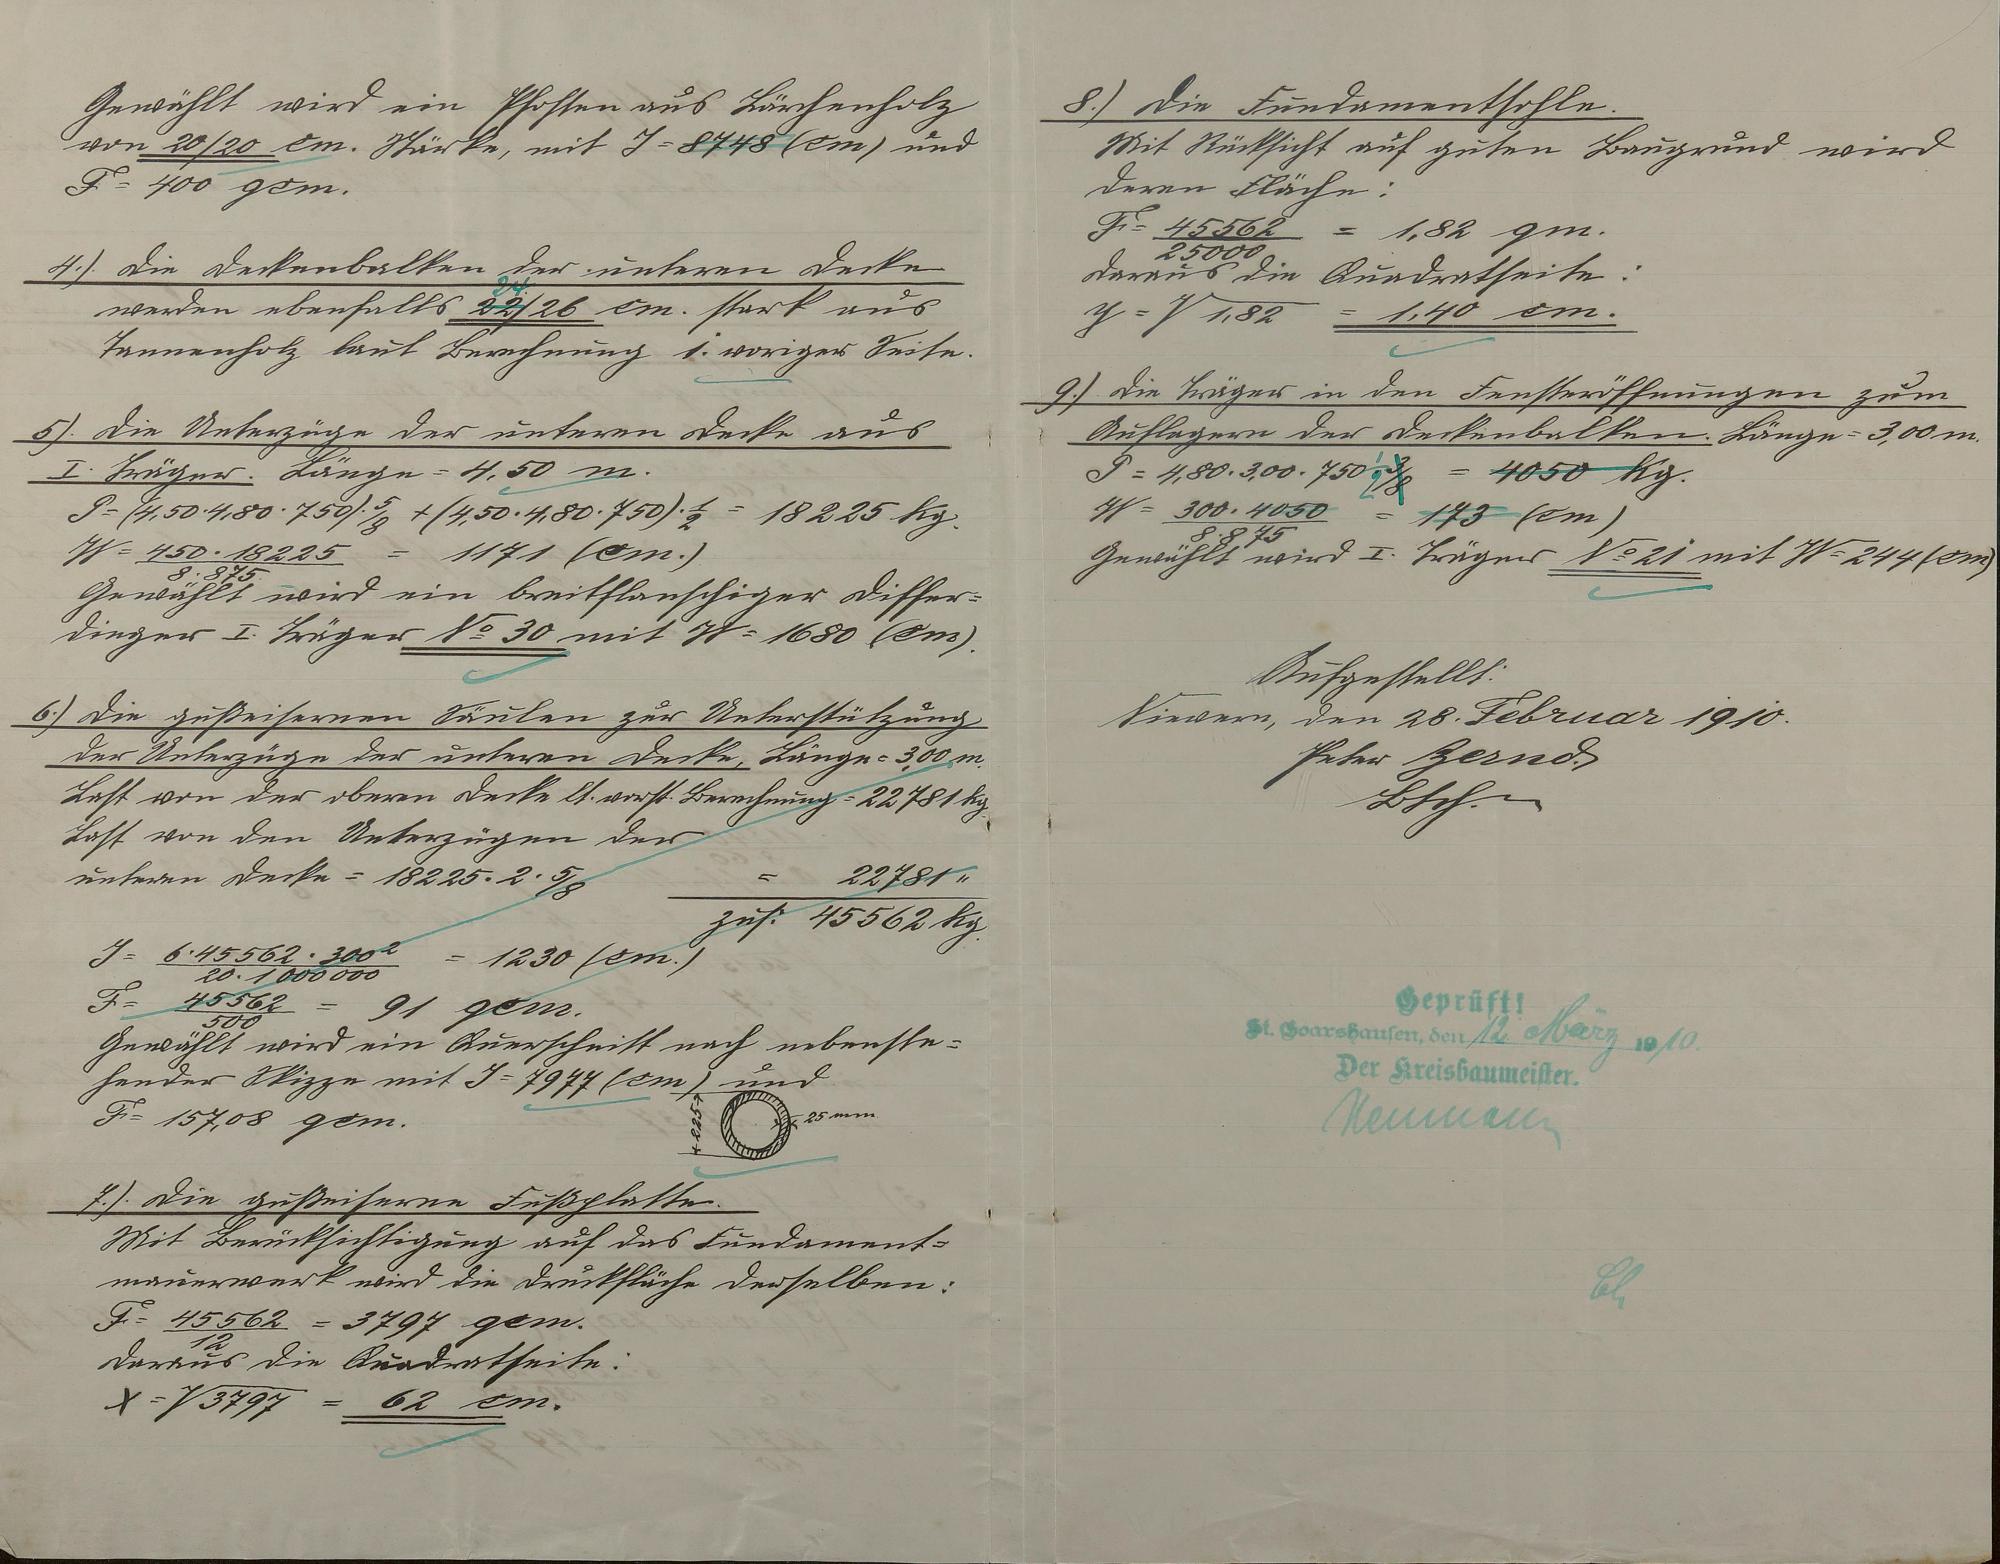 Gewählt wird ein Pfosten aus Lärchenholz
von 20/20 cm. Stärke, mit J = 8748 (cm) und
F = 400 qcm.
4.). Die Deckenbalken der unteren Decke
24.
werden ebenfalls 22/26 cm. stark aus
Tannenholz laut Berechnung 1. voriger Seite.
5). Die Unterzüge der unteren Decke aus
I. Träger. Länge = 4,50 m.
P = (4,50·4,80·750)·5/8 + (4,50·4,80·750)·1/2 = 18225 kg.
W = 450·18225 / 8·875 = 1171 (cm.)
Gewählt wird ein breitflanschiger Differ=
dinger I. Träger No 30 mit W = 1680 (cm).
6.) Die gußeisernen Säulen zur Unterstützung
der Unterzüge der unteren Decke, Länge = 3,00 m.
Last von der oberen Decke lt. vorst. Berechnung = 22781 kg.
Last von den Unterzügen der
unteren Decke = 18225·2·5/8 = 22781 "
zus: 45562 kg.
J = 6·45562·300² / 20·1000000 = 1230 (cm.)
F = 45562 / 500 = 91 qcm.
Gewählt wird ein Querschnitt nach nebenste=
hender Skizze mit J = 7977 (cm) und
F = 157,08 qcm.
225
25 mm
7.). Die gußeiserne Fußplatte.
Mit Berücksichtigung auf das Fundament=
mauerwerk wird die Druckfläche derselben:
F = 45562 / 12 = 3797 qcm.
daraus die Quadratseite:
x = √3797 = 62 cm.
8.) Die Fundamentsohle.
Mit Rücksicht auf guten Baugrund wird
deren Fläche:
F = 45562 / 25000 = 1,82 qm.
daraus die Quadratseite:
y = √1,82 = 1,40 cm.
9.) Die Träger in den Fensteröffnungen zum
Auflagern der Deckenbalken. Länge = 3,00 m.
P = 4,80·3,00·750·1/2 3/8 = 4050 kg.
W = 300·4050 / 8·875 = 173 (cm)
Gewählt wird I. Träger No 21 mit W = 244 (cm)
Aufgestellt:
Nievern, den 28. Februar 1910.
Peter Zernd.
Btch.
Geprüft!
St. Goarshausen, den 12. März 1910.
Der Kreisbaumeister.
Neumann